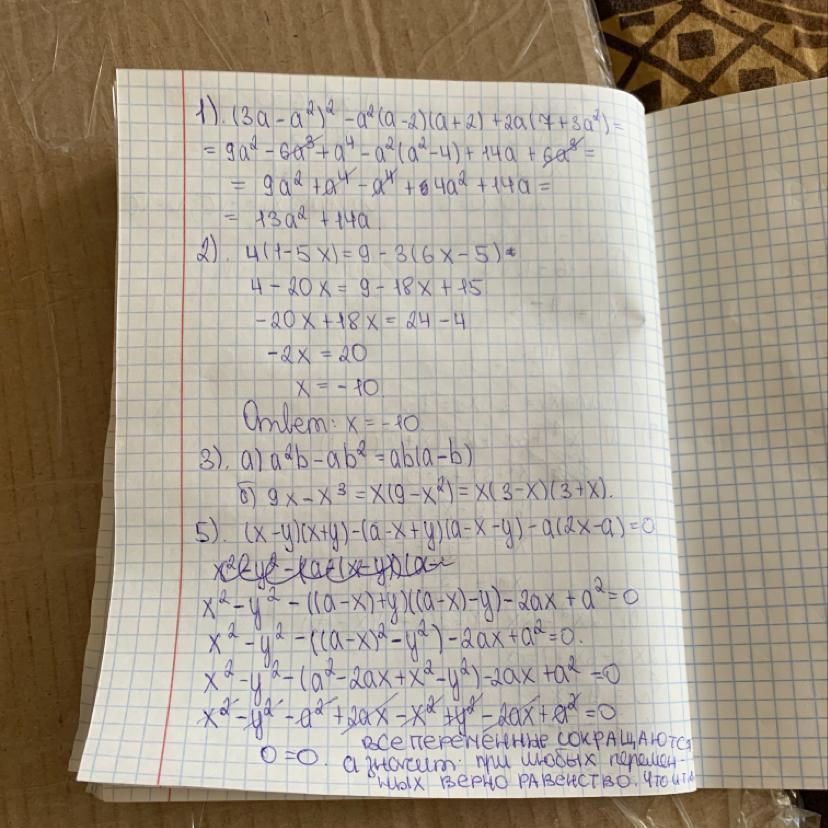 1). (3a - a²)² - a²(a-2)(a+2) + 2a(7+3a²) =
= 9a² - 6a³ + a⁴ - a²(a²-4) + 14a + 6a³ =
= 9a² + a⁴ - a⁴ + 4a² + 14a =
= 13a² + 14a.
2). 4(1-5x) = 9 - 3(6x-5)
4 - 20x = 9 - 18x + 15
-20x + 18x = 24 - 4
-2x = 20
x = -10.
Ответ: x = -10.
3). а) a²b - ab² = ab(a-b)
б) 9x - x³ = x(9-x²) = x(3-x)(3+x).
5). (x-y)(x+y) - (a-x+y)(a-x-y) - a(2x-a) = 0
x² - y² - ((a-x)+y)((a-x)-y) - 2ax + a² = 0
x² - y² - ((a-x)² - y²) - 2ax + a² = 0.
x² - y² - (a² - 2ax + x² - y²) - 2ax + a² = 0
x² - y² - a² + 2ax - x² + y² - 2ax + a² = 0
все переменные сокращаются
0 = 0. а значит при любых перемен-
ных верно равенство. что и т